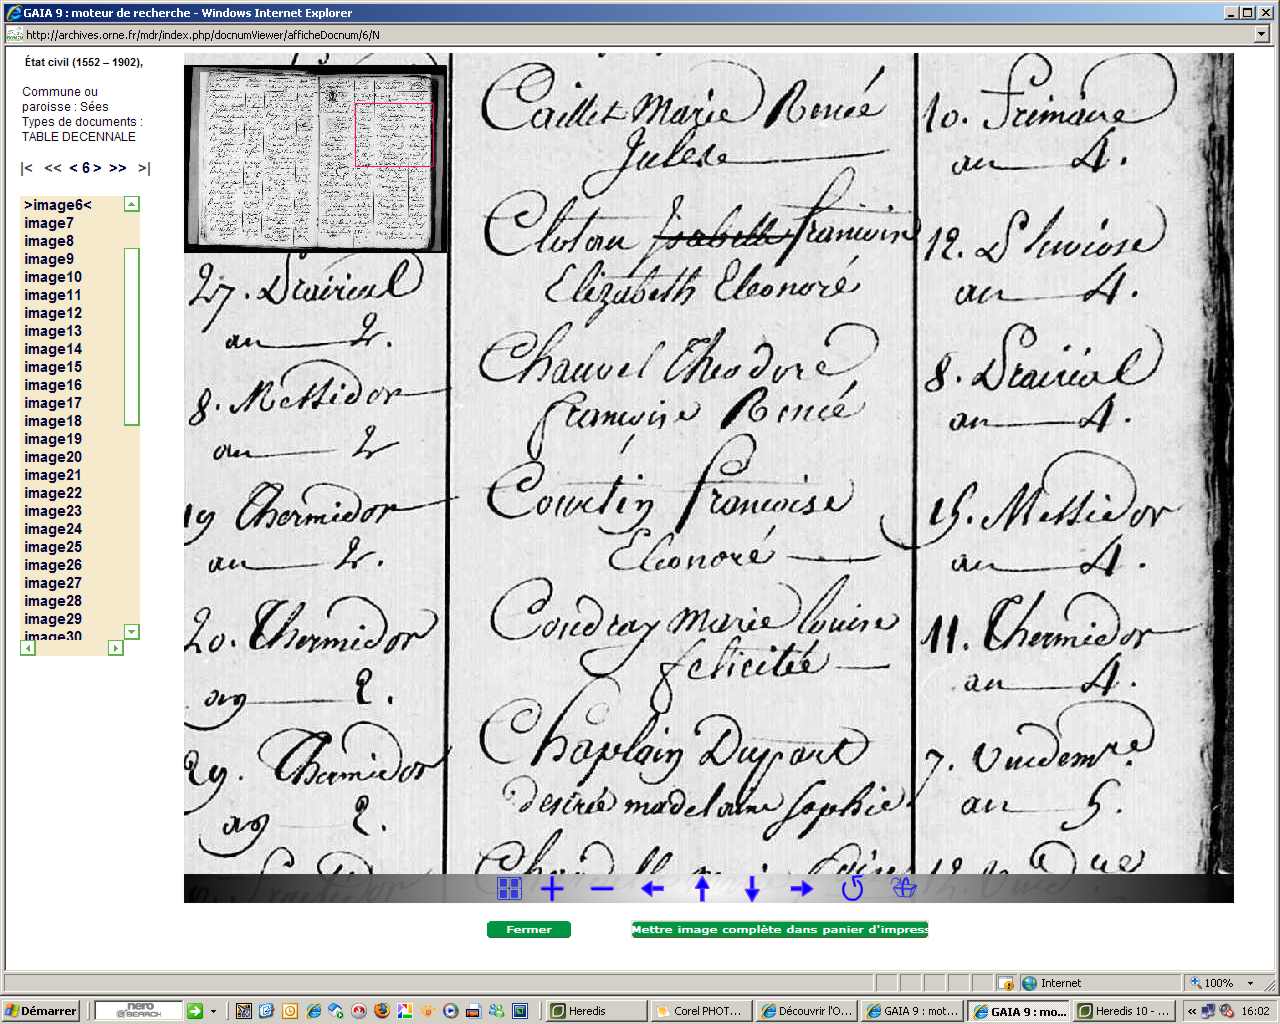 GAIA 9 : moteur de recherche - Windows Internet Explorer
http://archives.orne.fr/mdr/index.php/docnumViewer/afficheDocnum/6/N
État civil (1552 – 1902),
Commune ou
paroisse : Sées
Types de documents :
TABLE DECENNALE
|< << < 6 > >> >|
>image6<
image7
image8
image9
image10
image11
image12
image13
image14
image15
image16
image17
image18
image19
image20
image21
image22
image23
image24
image25
image26
image27
image28
image29
image30
27. Prairial
au 2.
8. Messidor
au 2
19 Thermidor
au 2.
20. Thermidor
2.
29. Thermidor
2.
Caillet Marie Renée
Julese
Clotau Isabelle françoise
Elizabeth Eleonoré
Chauvel Theodore
françoise Renée
Courtin françoise
Eleonoré
Coudray marie louise
felicitée
Chaplain Dupart
desirée madelaine Sophie
10. frimaire
au 4.
12. Pluviose
au 4.
8. Prairial
au 4.
15. Messidor
au 4.
11. Thermidor
au 4.
7. Vendemre
au 5.
Fermer
Mettre image complète dans panier d'impress
Internet
100%
Démarrer
nero
SEARCH
Heredis
Corel PHOT...
Découvrir l'O...
GAIA 9 : mot...
GAIA 9 : mo...
Heredis 10 - ...
16:02